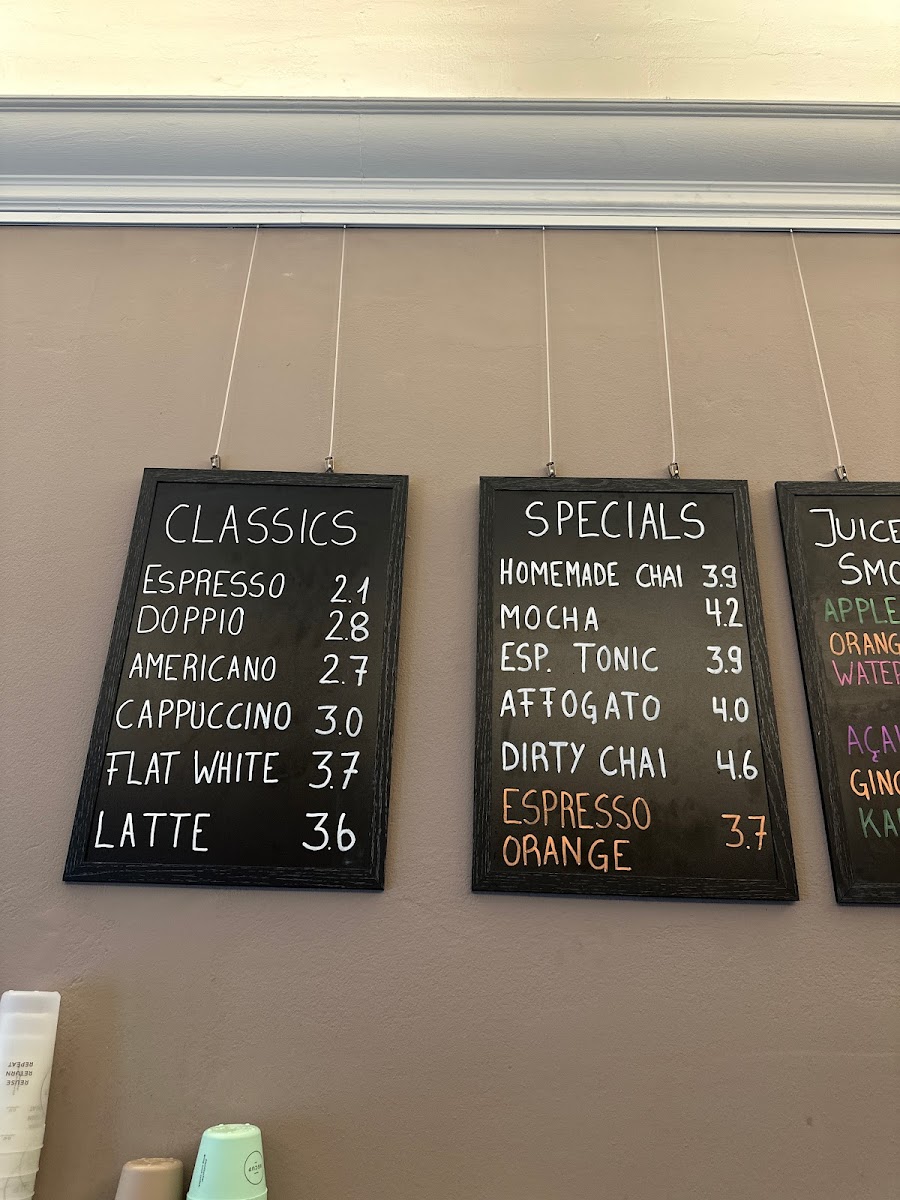 CLASSICS
ESPRESSO 2.1
DOPPIO 2.8
AMERICANO 2.7
CAPPUCCINO 3.0
FLAT WHITE 3.7
LATTE 3.6
SPECIALS
HOMEMADE CHAI 3.9
MOCHA 4.2
ESP. TONIC 3.9
AFFOGATO 4.0
DIRTY CHAI 4.6
ESPRESSO
ORANGE 3.7
JUICE
SMO
APPLE
ORANG
WATER
AÇAI
GING
KA
REUSE
RETURN
REPEAT